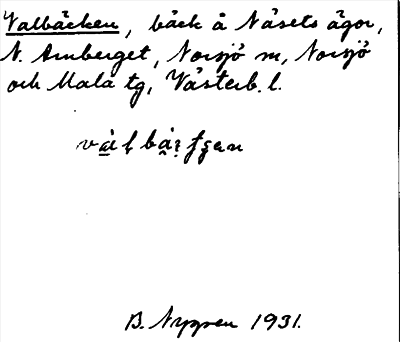 Valbäcken, bäck å Näsets ägor,
N. Arnberget, Norsjö sn, Norsjö
och Malå tg, Västerb. l.
B. Nygren 1931.